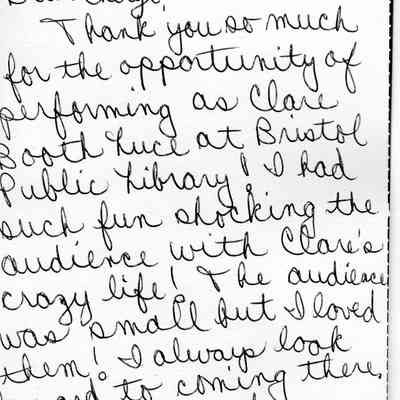 Thank you so much
for the opportunity of
performing as Clare
Booth Luce at Bristol
Public Library! I had
such fun shocking the
audience with Clare's
crazy life! The audience
was small but I loved
them! I always look
to coming there,